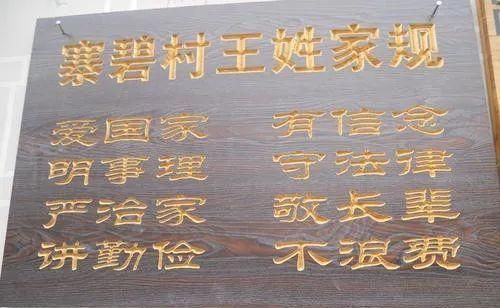 寨碧村王姓家规
爱国家 有信念
明事理 守法律
严治家 敬长辈
讲勤俭 不浪费